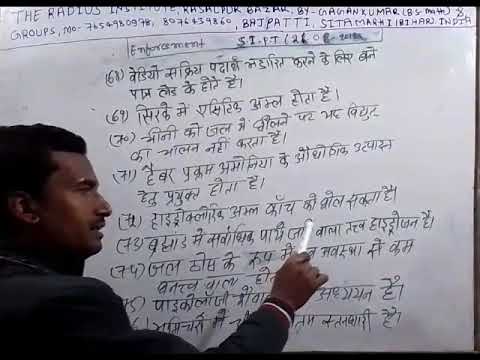 THE RADIUS INSTITUTE, RASALPUR BAZAR, BY- GAGAN KUMAR (B.S- MATH) &
GROUPS, MO- 7654980978, 8076439860, BAJPATTI, SITAMARHI (BIHAR) INDIA
Enforcement SI-PT
(68) रेडियो सक्रिय पदार्थ भंडारित करने के लिए बने
पात्र लेड के होते है।
(69) सिरके में एसिटिक अम्ल होता है।
(70) चीनी को जल में घोलने पर यह विद्युत
का चालन नहीं करता है।
(71) हैबर प्रक्रम अमोनिया के औधोगिक उत्पादन
हेतु प्रयुक्त होता है।
(72) हाइड्रोक्लोरिक अम्ल काँच को घोल सकता है।
(73) ब्रह्मांड में सर्वाधिक पाये जाने वाला तत्त्व हाइड्रोजन है।
(74) जल ठोस के रूप में अवस्था से कम
घनत्व वाला
अध्ययन है।
स्तनधारी है।